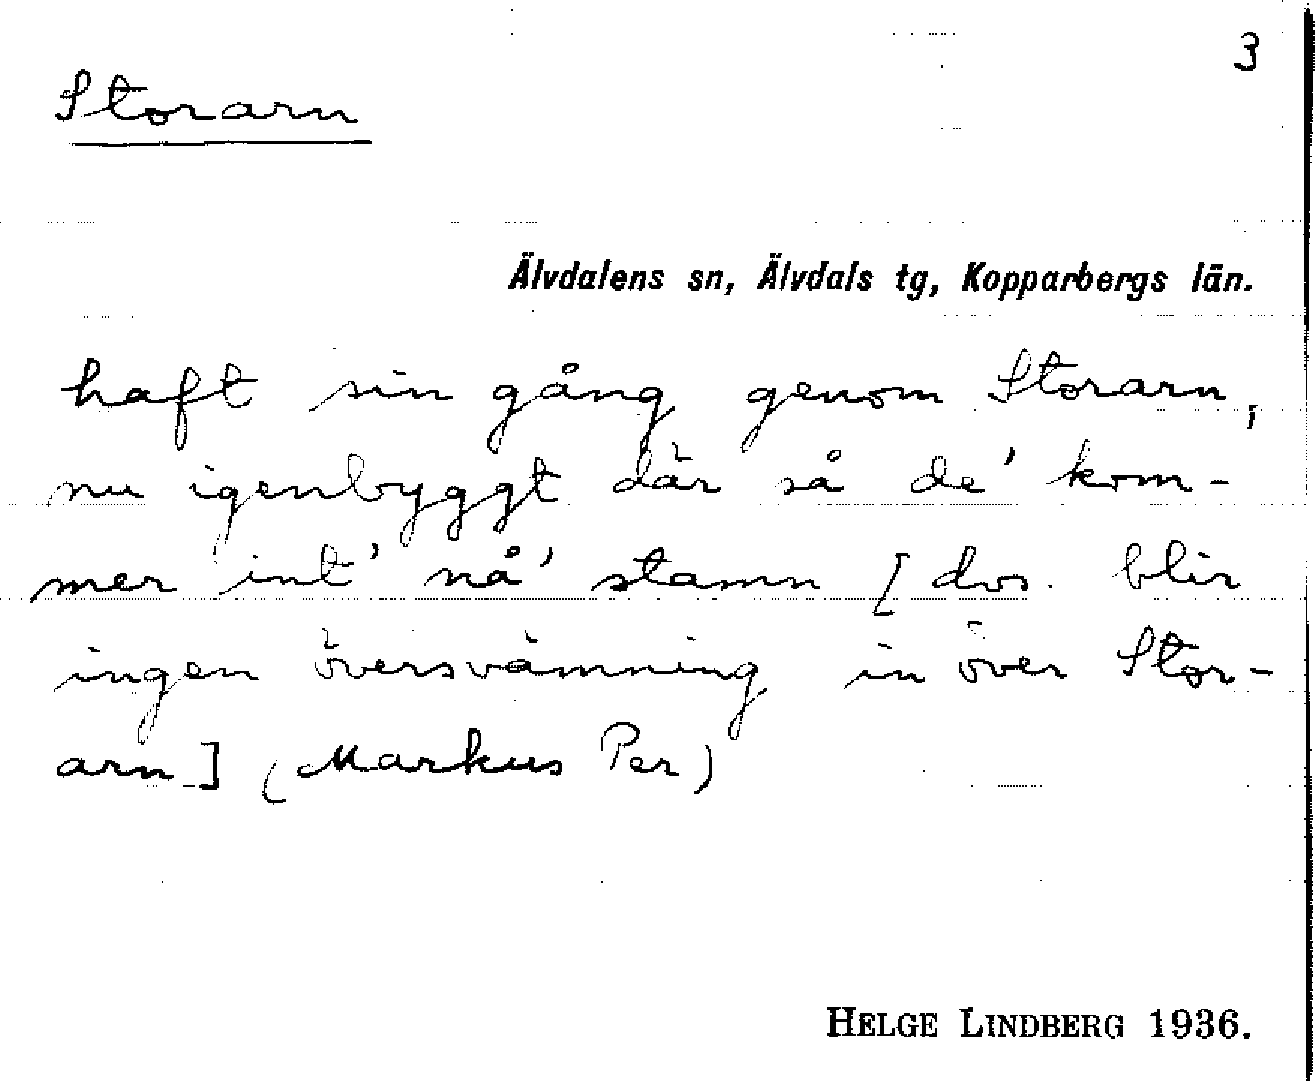 3
Storarn
Älvdalens sn, Älvdals tg, Kopparbergs län.
haft sin gång genom Storarn,
nu igenbyggt där så de' kom-
mer int' nå' stamn [dvs. blir
ingen översvämning in över Stor-
arn] (Markus Per)
HELGE LINDBERG 1936.